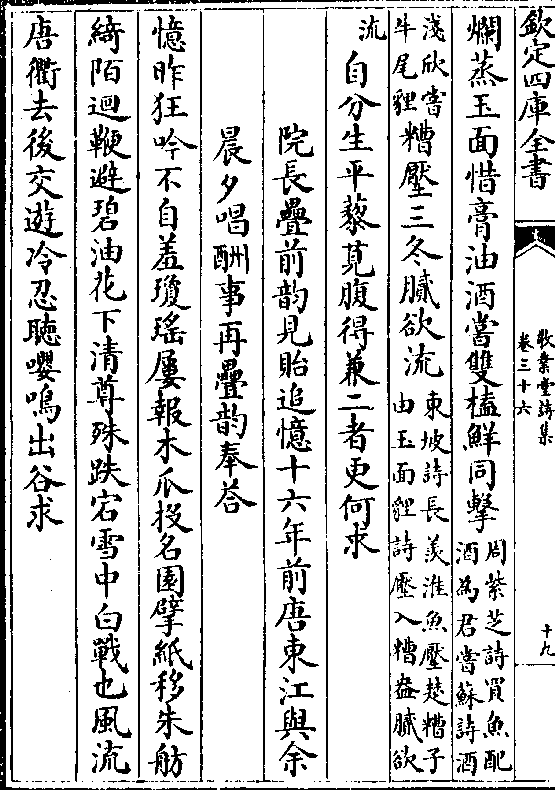 欽定四庫全書
敬業堂詩集
卷三十六
十九
爛蒸玉面惜膏油酒嘗雙榼鮮同擊
周紫芝詩買魚配
酒為君嘗蘇詩酒
淺欣嘗
牛尾貍
糟壓三冬膩欲流
東坡詩長羨淮魚壓楚糟子
由玉面貍詩壓入糟盎膩欲
流
自分生平藜莧腹得兼二者更何求
院長疊前韵見貽追憶十六年前唐東江與余
晨夕唱酬事再疊韵奉荅
憶昨狂吟不自羞瓊瑤屢報木瓜投名園擘紙移朱舫
綺陌迴鞭避碧油花下清尊殊跌宕雪中白戰也風流
唐衢去後交遊冷忍聽嚶鳴出谷求